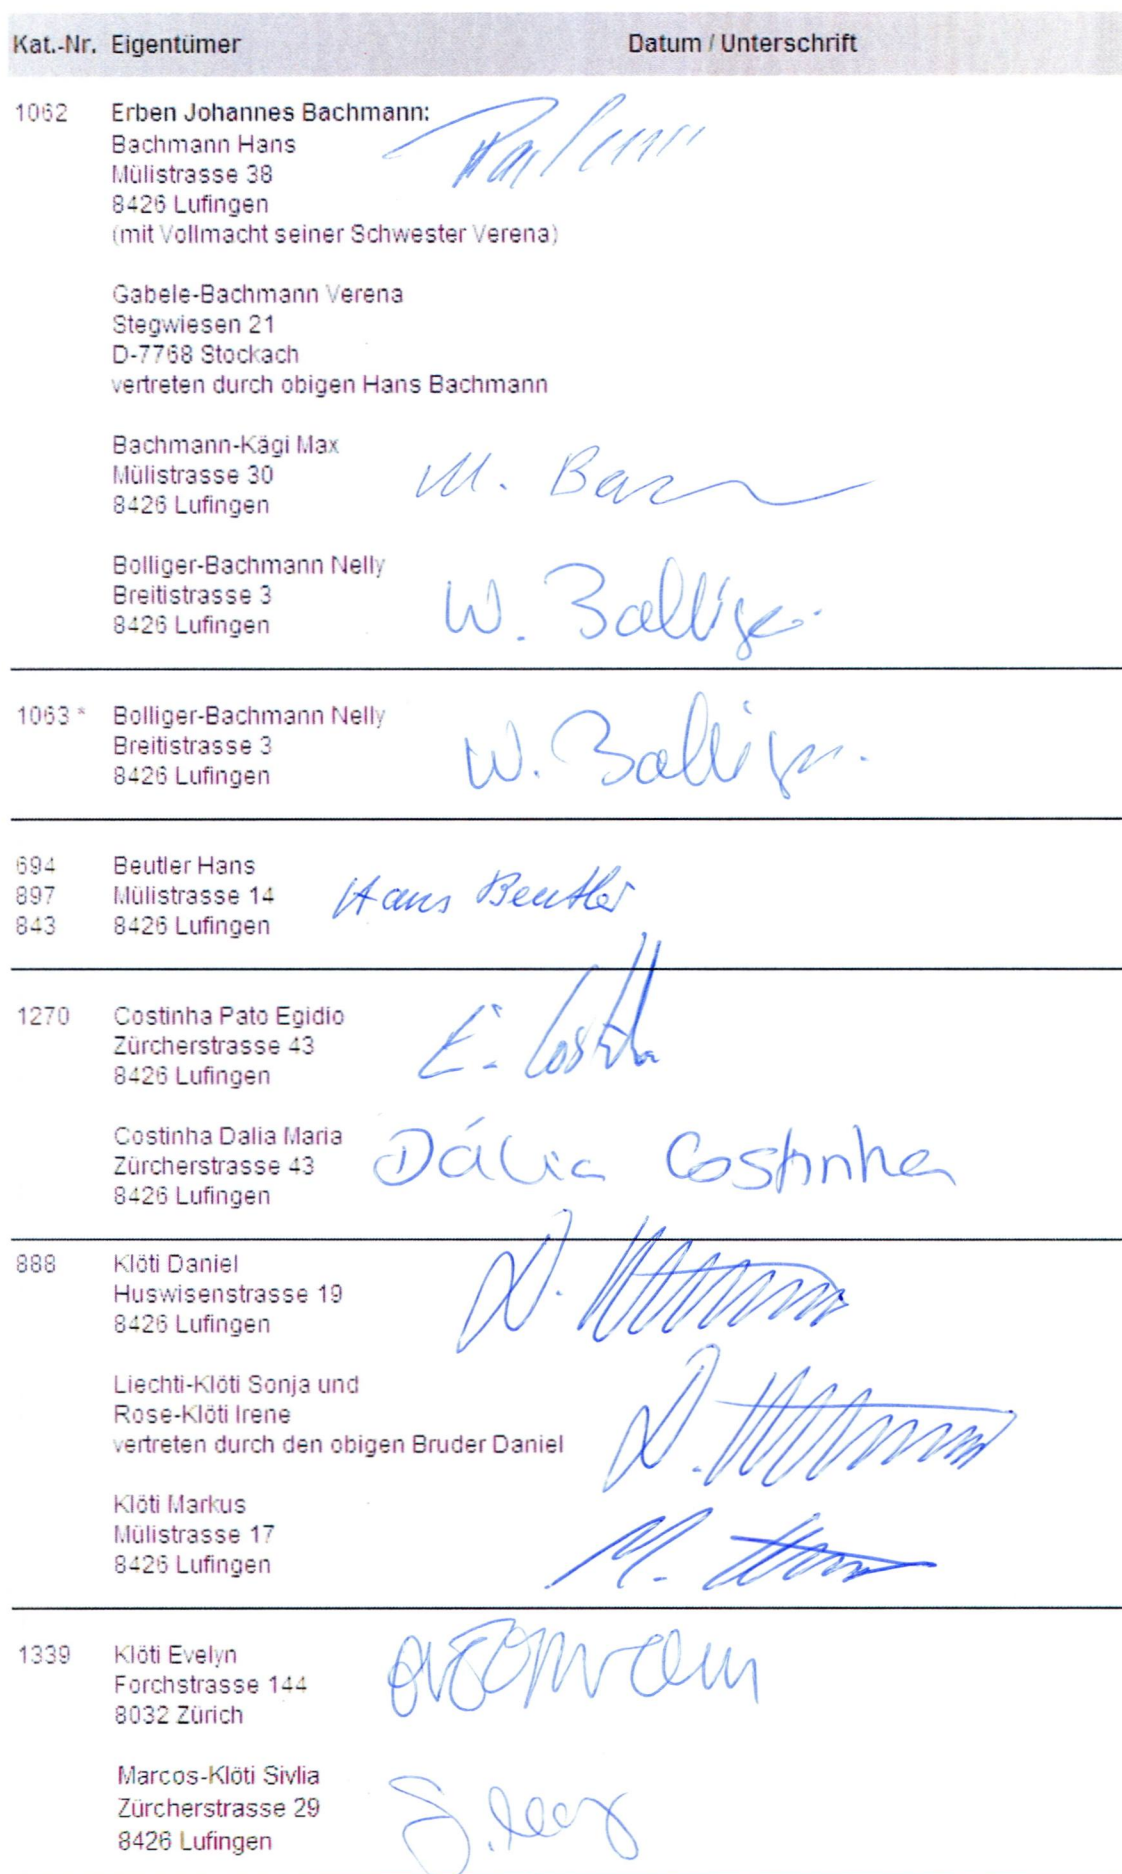 Kat.-Nr. Eigentümer Datum / Unterschrift
1062 Erben Johannes Bachmann:
Bachmann Hans
Mülistrasse 38
8426 Lufingen
(mit Vollmacht seiner Schwester Verena)
Gabele-Bachmann Verena
Stegwiesen 21
D-7768 Stockach
vertreten durch obigen Hans Bachmann
Bachmann-Kägi Max
Mülistrasse 30 M.
8426 Lufingen
Bolliger-Bachmann Nelly
Breitistrasse 3 W. Bolliger
8426 Lufingen
1063 * Bolliger-Bachmann Nelly
Breitistrasse 3 W. Bolliger
8426 Lufingen
694 Beutler Hans
897 Mülistrasse 14 Hans Beutler
843 8426 Lufingen
1270 Costinha Pato Egidio
Zürcherstrasse 43 E.
8426 Lufingen
Costinha Dalia Maria
Zürcherstrasse 43 Dália Costinha
8426 Lufingen
888 Klöti Daniel
Huswisenstrasse 19 D.
8426 Lufingen
Liechti-Klöti Sonja und
Rose-Klöti Irene
vertreten durch den obigen Bruder Daniel D.
Klöti Markus
Mülistrasse 17 M.
8426 Lufingen
1339 Klöti Evelyn
Forchstrasse 144
8032 Zürich
Marcos-Klöti Sivlia
Zürcherstrasse 29 S.
8426 Lufingen